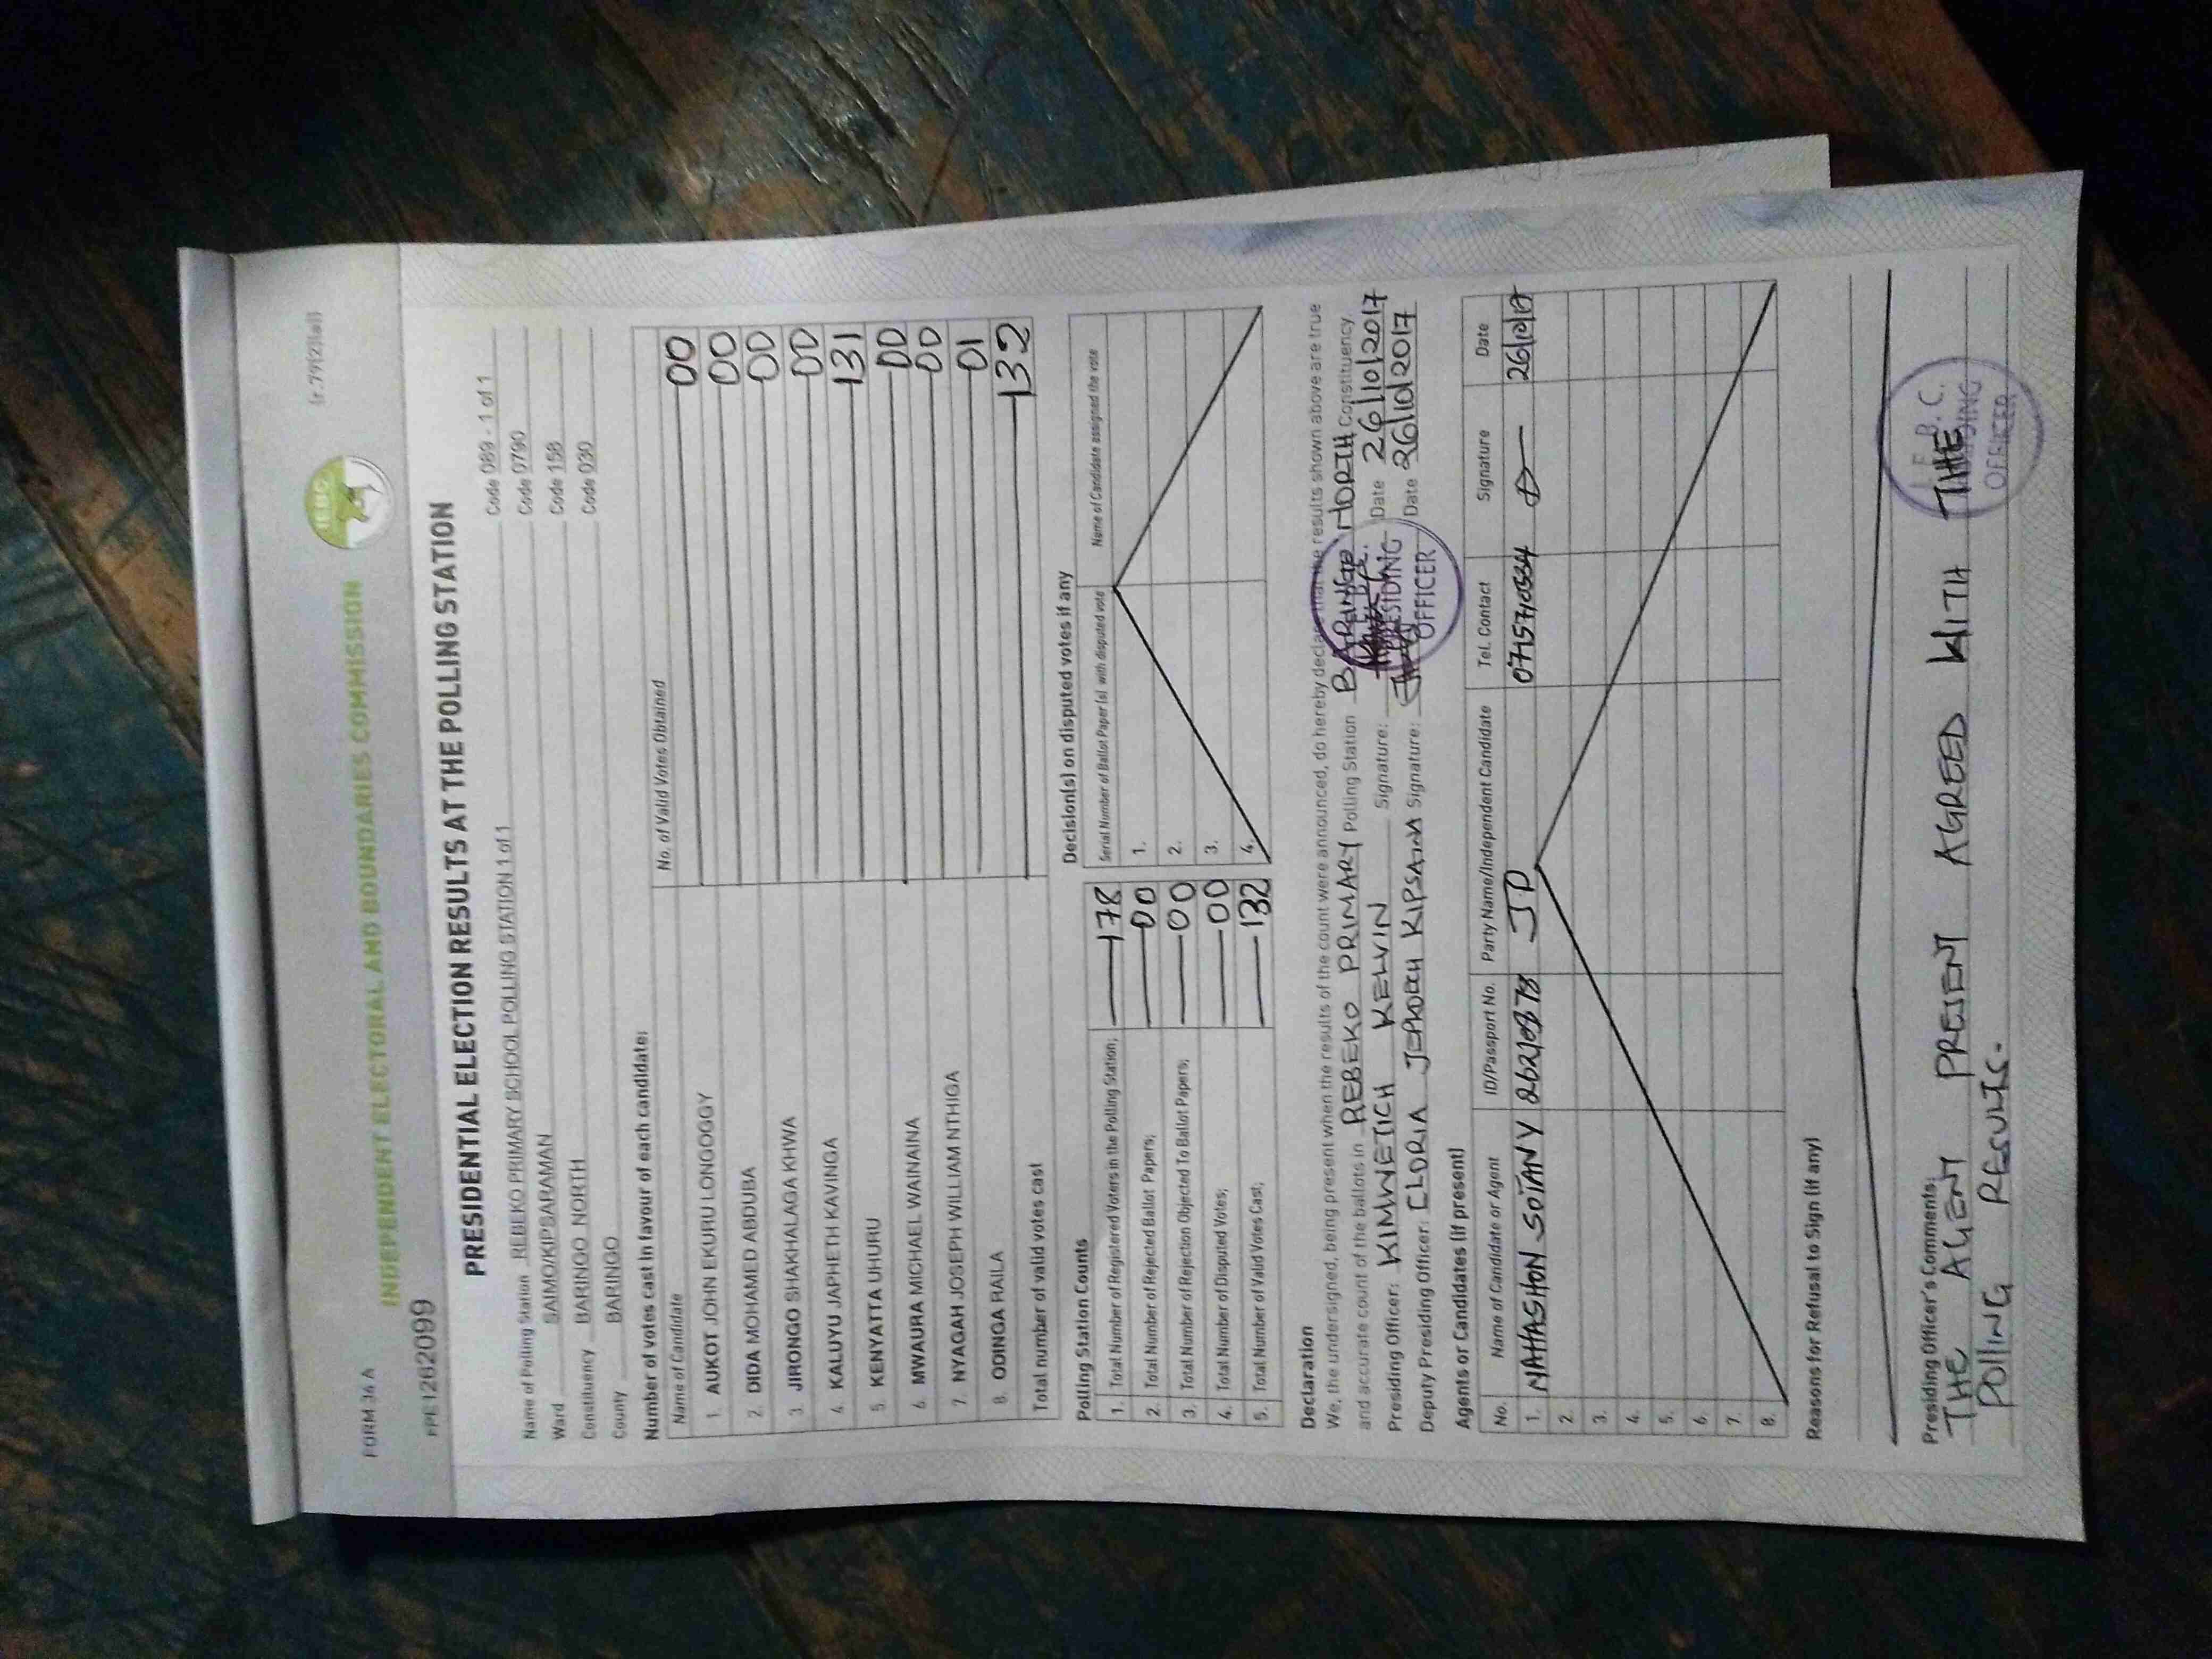 FORM 34 A
(r.79(2)(a))
INDEPENDENT ELECTORAL AND BOUNDARIES COMMISSION
IEBC
FPE 1262099
PRESIDENTIAL ELECTION RESULTS AT THE POLLING STATION
Name of Polling Station REBEKO PRIMARY SCHOOL POLLING STATION 1 of 1 Code 089 - 1 of 1
Ward SAIMO/KIPSARAMAN Code 0790
Constituency BARINGO NORTH Code 158
County BARINGO Code 030
Number of votes cast in favour of each candidate:
Name of Candidate No. of Valid Votes Obtained
1. AUKOT JOHN EKURU LONGOGGY 00
2. DIDA MOHAMED ABDUBA 00
3. JIRONGO SHAKHALAGA KHWA 00
4. KALUYU JAPHETH KAVINGA 00
5. KENYATTA UHURU 131
6. MWAURA MICHAEL WAINAINA 00
7. NYAGAH JOSEPH WILLIAM NTHIGA 00
8. ODINGA RAILA 01
Total number of valid votes cast 132
Polling Station Counts
1. Total Number of Registered Voters in the Polling Station; 178
2. Total Number of Rejected Ballot Papers; 00
3. Total Number of Rejection Objected To Ballot Papers; 00
4. Total Number of Disputed Votes; 00
5. Total Number of Valid Votes Cast; 132
Decision(s) on disputed votes if any
Serial Number of Ballot Paper (s) with disputed vote Name of Candidate assigned the vote
1.
2.
3.
4.
Declaration
We, the undersigned, being present when the results of the count were announced, do hereby declare that the results shown above are true
and accurate count of the ballots in REBEKO PRIMARY Polling Station BARINGO NORTH Constituency
Presiding Officer: KIMWETICH KELVIN Signature: Date 26/10/2017
Deputy Presiding Officer: GLORIA JEPKOECH KIPSANG Signature: Date 26/10/2017
PRESIDING
OFFICER
Agents or Candidates (if present)
No. Name of Candidate or Agent ID/Passport No. Party Name/Independent Candidate Tel. Contact Signature Date
1. NAHASHON SOTANY JP 0715710534 26/10/17
2.
3.
4.
5.
6.
7.
8.
Reasons for Refusal to Sign (if any)
Presiding Officer's Comments;
THE AGENT PRESENT AGREED WITH THE
POLLING RESULTS.
I.E.B.C.
OFFICER